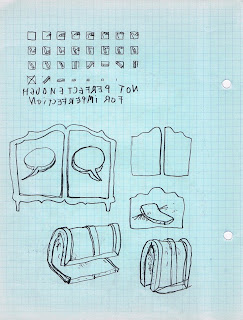 NOT PERFECT ENOUGH
FOR IMPERFECTION